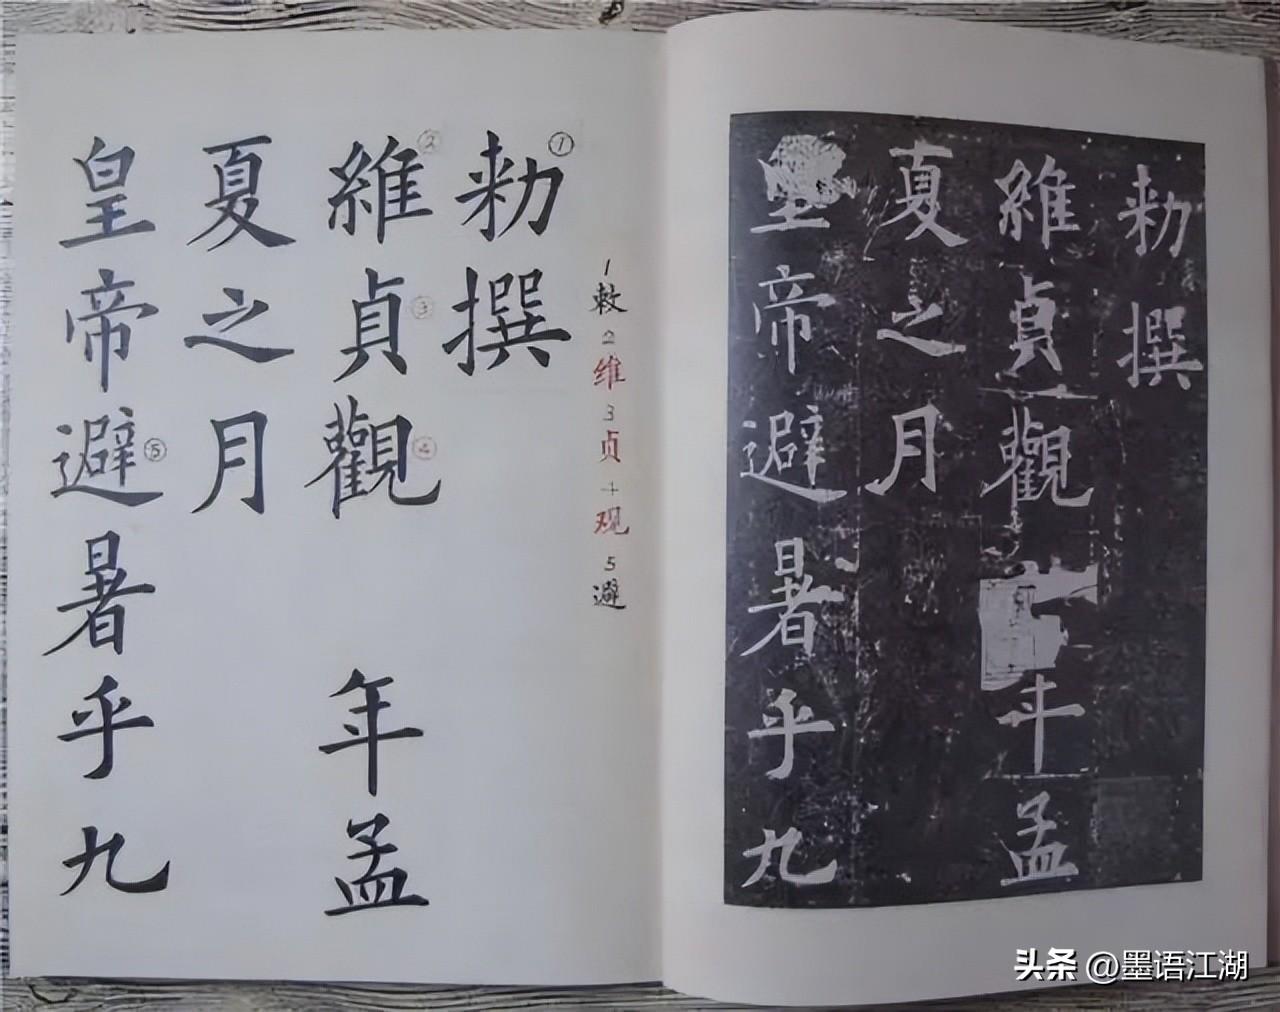 勑①撰
維②貞③觀④年孟
夏之月
皇帝避⑤暑乎九
1敕2维3贞4观5避
勑撰
維貞觀年孟
夏之月
皇帝避暑乎九
头条 @墨语江湖